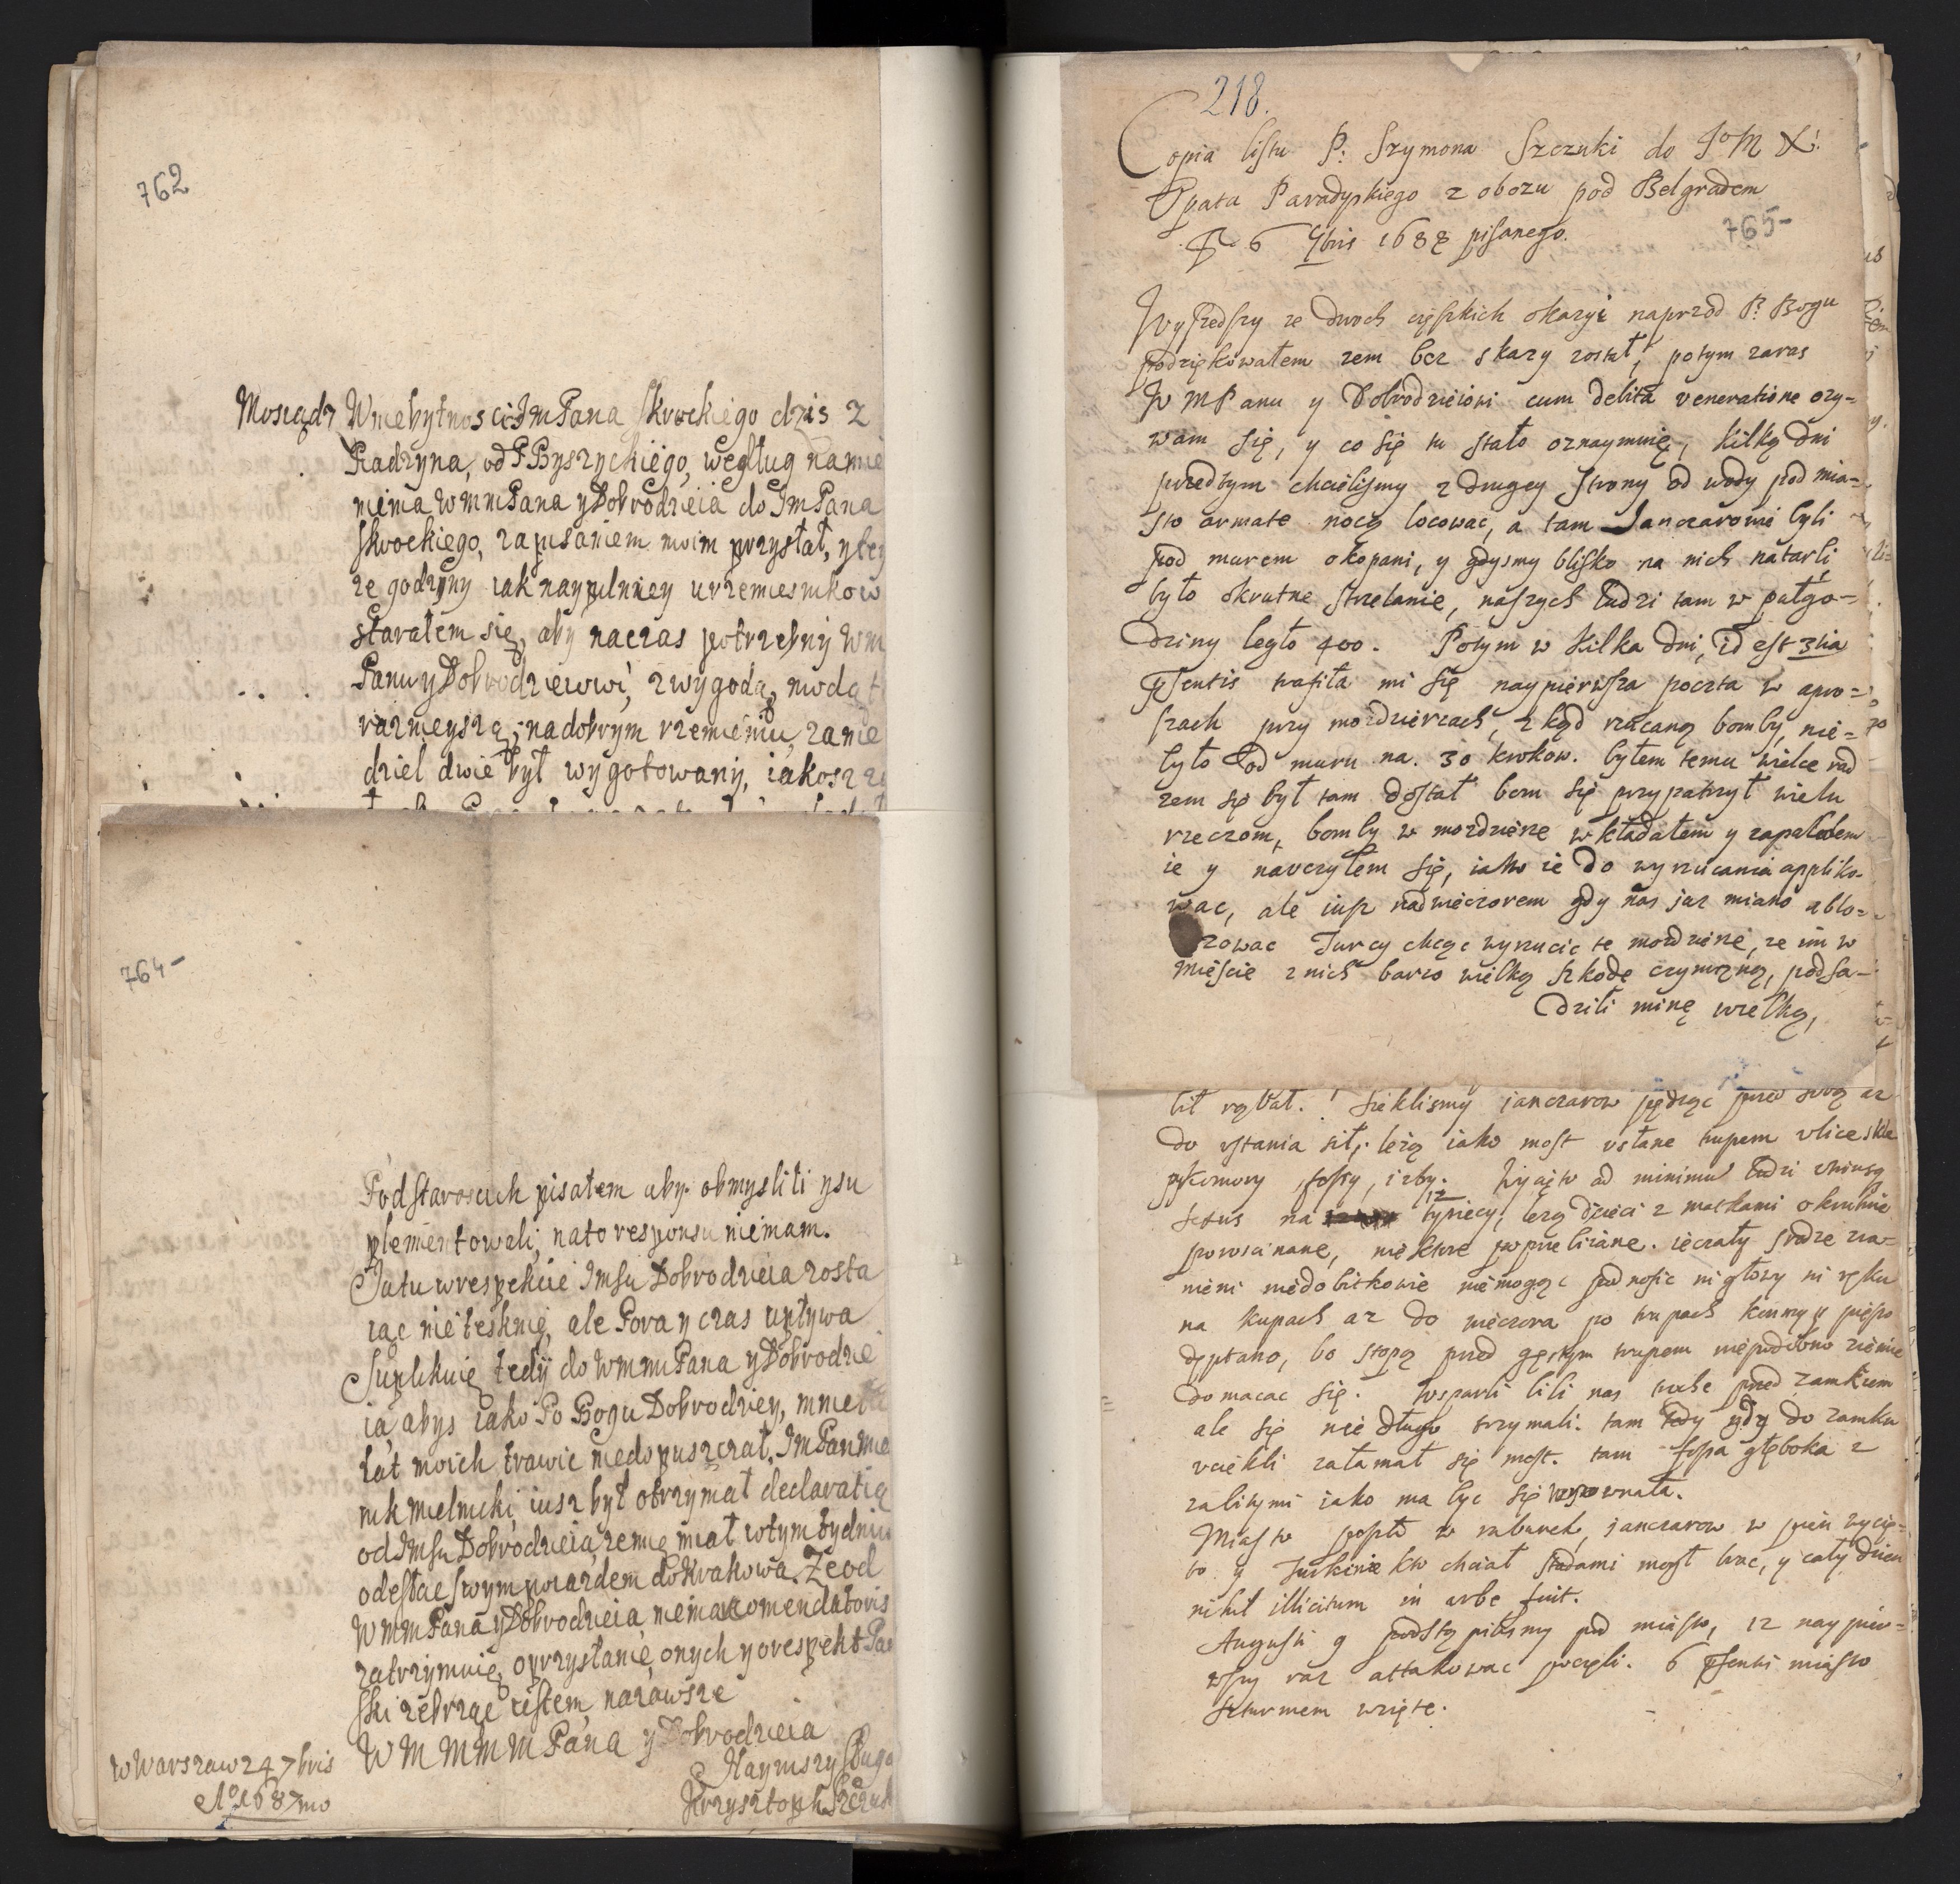 762
Mosiądz W niebytnosci Im Pana Skrockiego dzis z
Radzyna, od P Byszyckiego, według namie
nienia WMM Pana y Dobrodzieia do Im Pana
Skrockiego, za pisaniem moim przysłał, y tey
ze godziny iak naypilniey u rzemiesnikow
starałem się, aby na czas potrzebny WM
Panu y Dobrodzieiowi, z wygodą, modą
raznieyszą, na dobrym rzemieniu, za nie
dziel dwie był wygotowany, iakosz
764-
Pod Staroscich pisałem aby obmyslili y su
plementowali, na to responsu nie mam.
Ia tu w respekcie Imsci Dobrodzieia zosta
iąc nie tesknię, ale Pora y czas upływa
Suplikuię tedy do WMM Pana y Dobrodzie
ia, abys iako Po Bogu Dobrodziey, mnie
lat moich trawic niedopuszczał. Im Pan Mie
nik Mielnicki, iusz był otrzymał declaratią
od Imsci Dobrodzieia, ze mię miał w tym tydniu
odesłac swym poiazdem do Krakowa. Ze od
WMM Pana y Dobrodzieia niemasz comendatoris
zatrzymuię, o przysłanie onych y o respekt Pan
ski zebrząc iestem na zawsze
W M M M M Pana y Dobrodzieia
Naynizszy Sługa
Krzysztoph Szczuk
w Warszaw 24 7bris
Ao 1687mo
218.
Copia listu P: Szymona Szczuki do JoM X:
Opata Paradyskiego z obozu pod Belgradem
D 6 7bris 1688 pisanego.
765-
Wyszedszy ze dwoch cięszkich okazyi naprzod P. Bogu
podziękowałem zem bez skazy został, potym zaras
W MPanu y Dobrodzieiowi cum debita veneratione ozy=
wam się, y co się tu stało oznaymuię, kilką dni
przedtym chcielismy z drugey strony od wody pod mia=
sto armate nocą locowac, a tam Janczarowie byli
pod murem okopani, y gdysmy blisko na nich natarli
było okrutne strzelanie, naszych ludzi tam w pułgo=
dziny legło 400. Potym w kilka dni, id est 3tia
psentis trafiła mi się naypierwsza poczta w apro=
szach przy mozdzierzach, z kąd rzucaną bomby, nie=
było od muru na. 30 krokow. byłem temu wielce rad
zem się był tam dostał bom się przypatrzył wielu
rzeczom, bomby w mozdzierze wkładałem y zapalałem
ie y nauczyłem się, iako ie do wyrzucania appliko-
wac, ale iusz nadwieczorem gdy nas juz miano ablo=
zowac Turcy chcąc wyrzucic te mozdzierze, ze im w
miescie z nich barzo wielką szkodę czyniono, podsa-
dzili minę wielką,
bił rąbał. Siekliśmy janczarow pędząc przed sobą az
do ustania sił, lezą iako most usłane trupem ulice skle
py komory, fossy, izby. Licząc to ad minimum ludzi utriusq
sexus na 12 tysiecy, lezą dzieci z matkami okrutnie
poroscinane, niektore poprzebiiane. ięczały srodze zra=
nieni niedobitkowie niemogąc podnosic ni głowy ni ręku
na kupach az do wieczora po trupach konmy y pieszo
deptano, bo stopą przed gęstym trupem niepodobno ziemie
domacac się. Wsparli bili nas trochę przed zamkiem
ale się nie długo trzymali. tam tedy gdy do zamku
uciekli załamał się most. tam fossa głęboka z
zabitymi iako ma byc się wyrownała.
Miasto poszło w rabunek, janczarow w pien wycię=
to y Turkinie kto chciał stadami mogł brac, y cały dzien
nihil illicitum in urbe fuit.
Augusti 9 podstąpilismy pod miasto, 12 naypier=
wszy raz attakowac poczęli. 6 psentis miasto
szturmem wzięte.